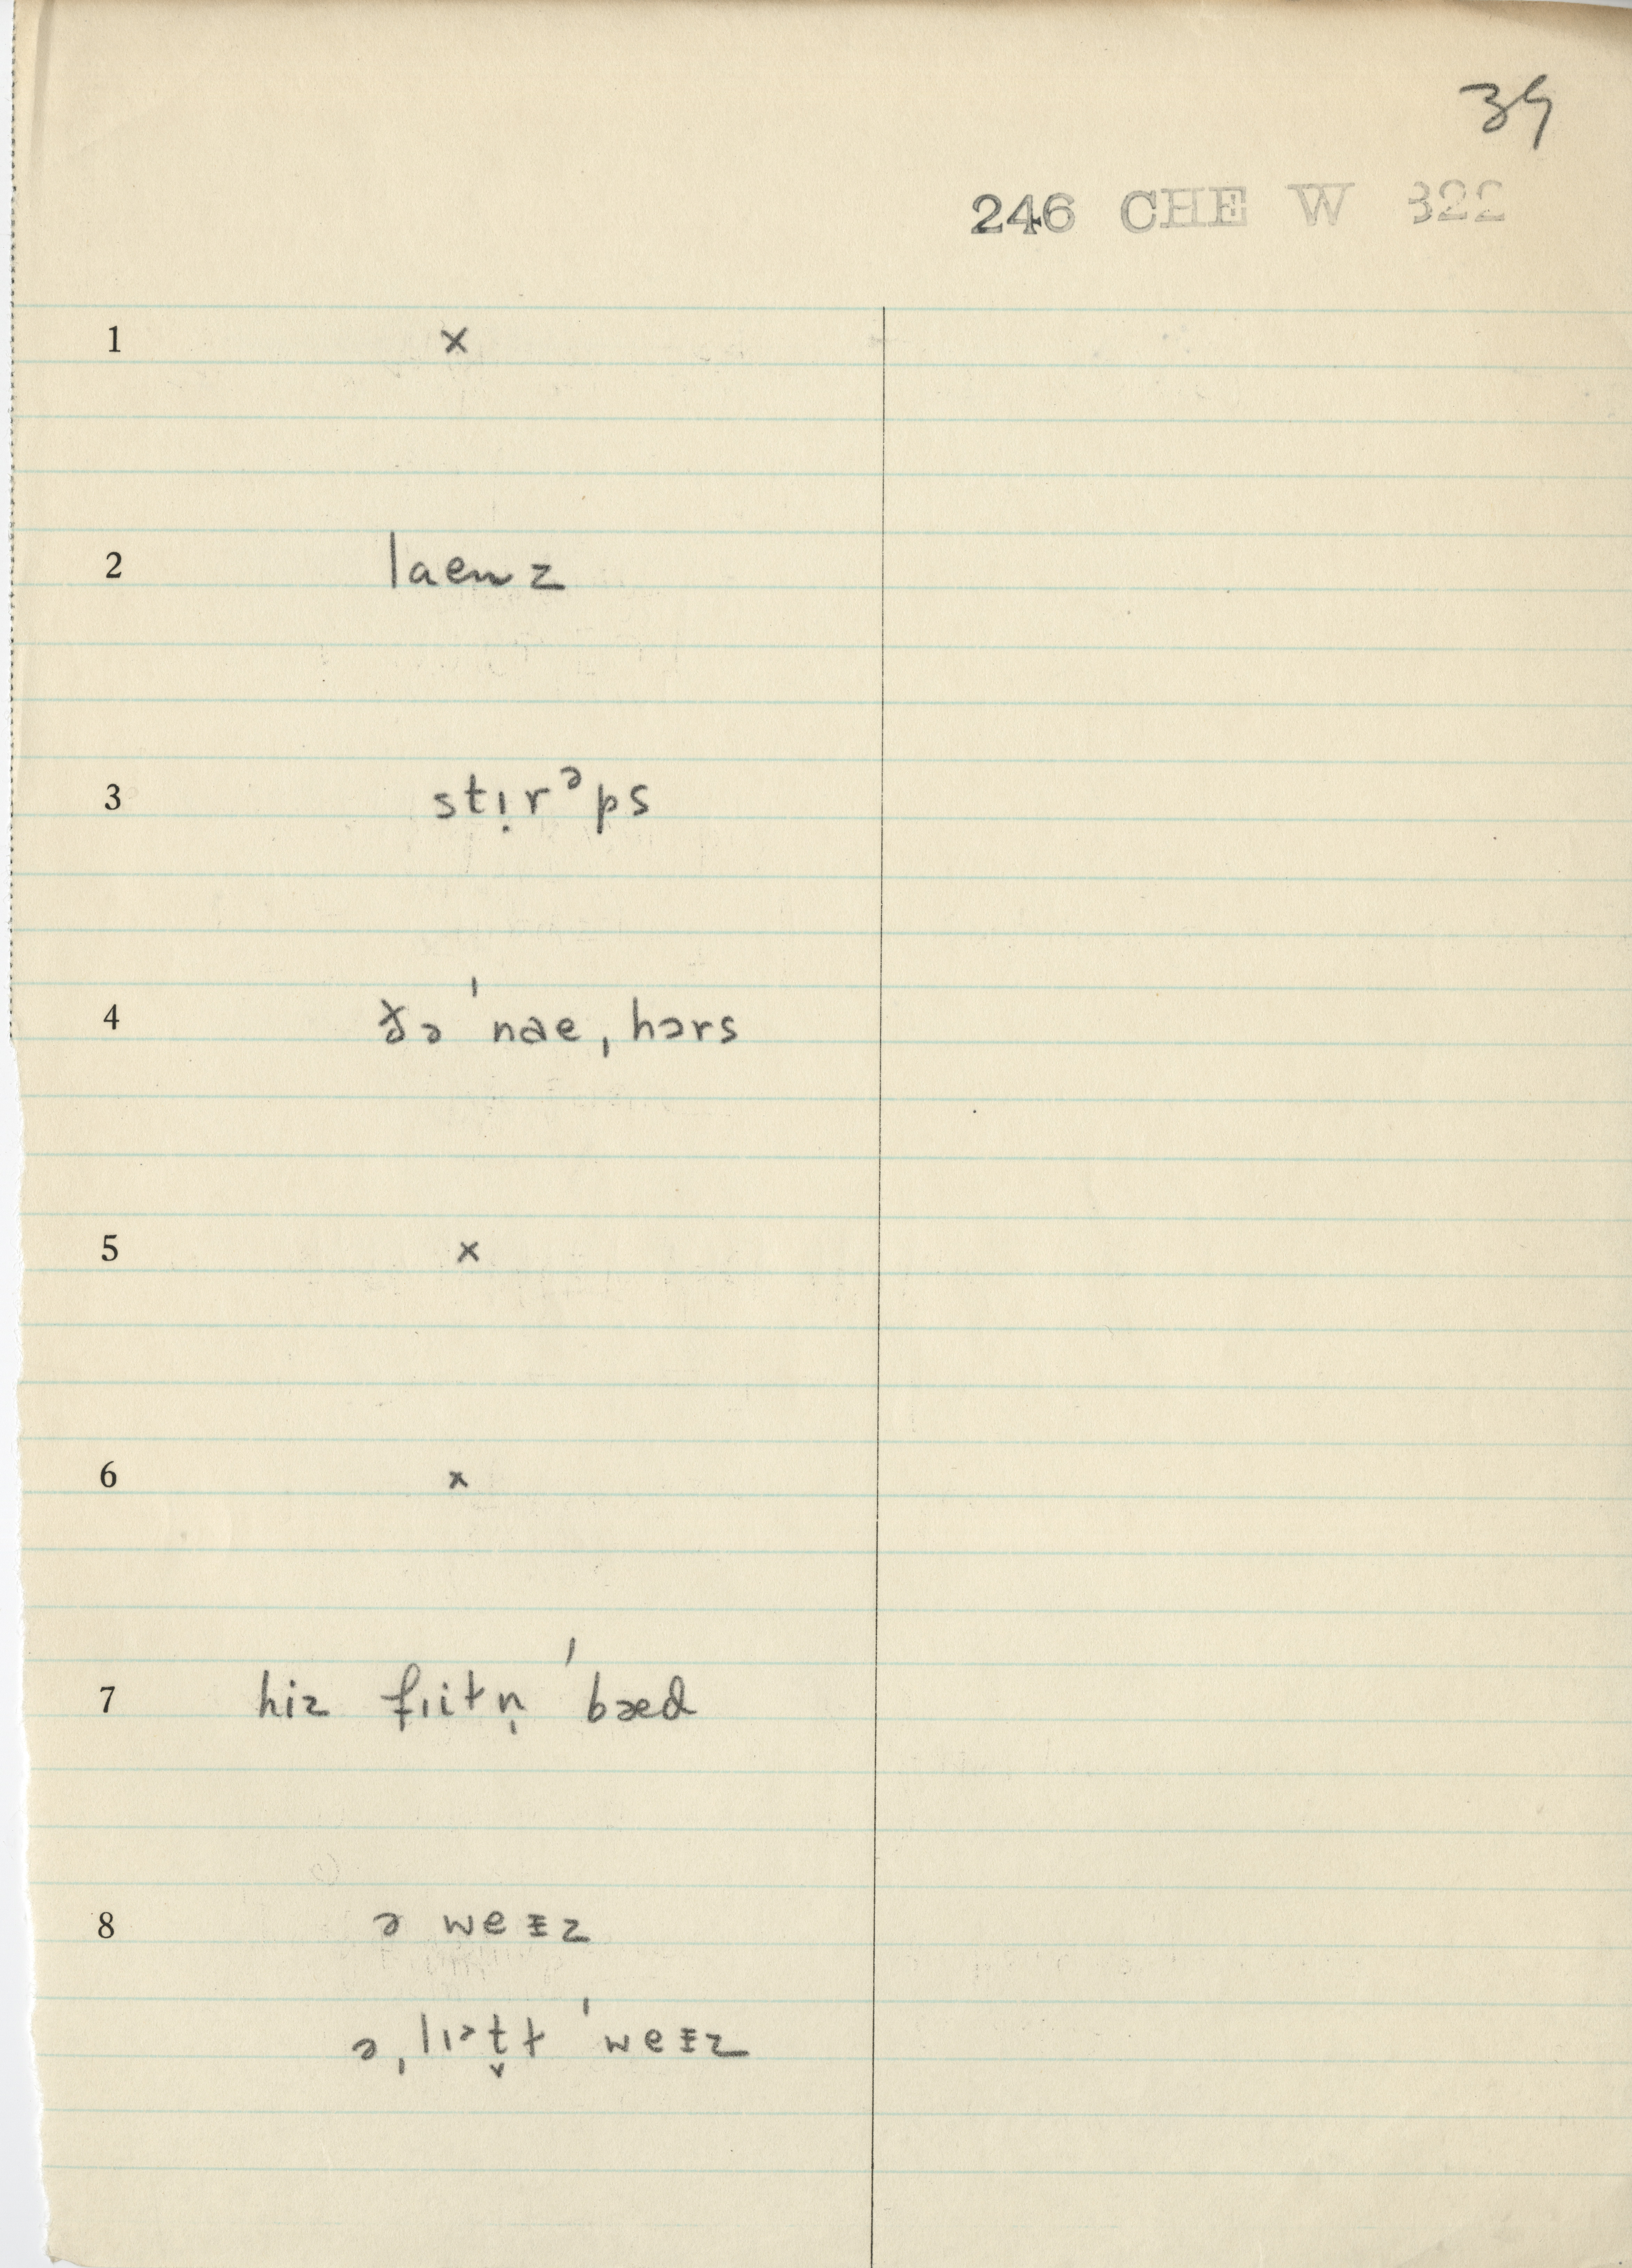 39
246 CHE W 322
1 x
2 laenz
3 stı̣rᵊps
4 ðə ˈnae ˌhɔrs
5 x
6 x
7 hiz fɪitn̩ ˈbæd
8 ə weᵻz
ə ˌlɪᵊt̬ɫ ˈweᵻz